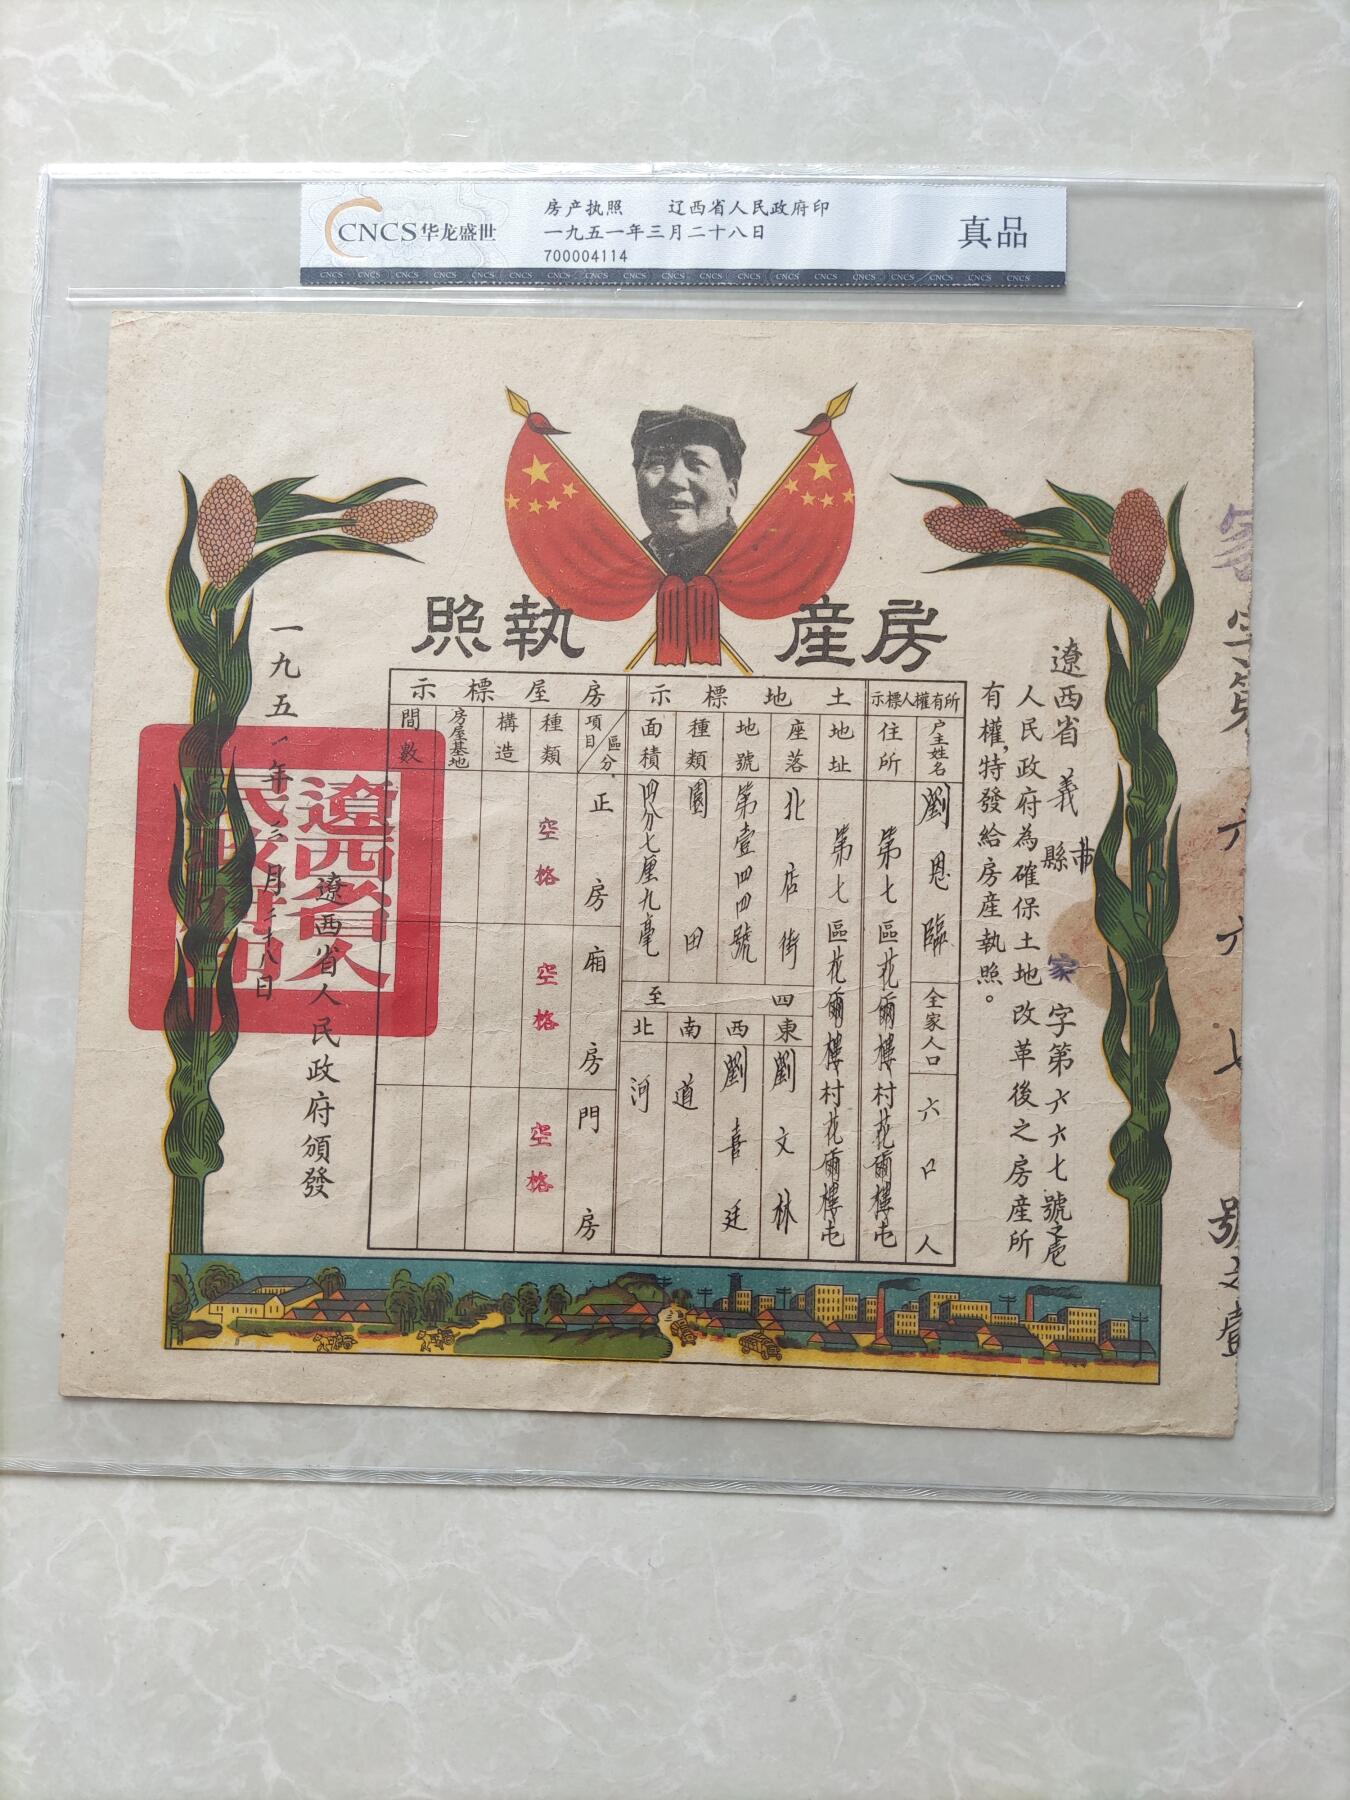 CNCS 华龙盛世
房产执照 辽西省人民政府印
一九五一年三月二十八日
700004114
真品
CNCS CNCS CNCS CNCS CNCS CNCS CNCS CNCS CNCS CNCS CNCS CNCS CNCS CNCS CNCS CNCS CNCS CNCS CNCS
房産執照
字第六六七號之壹
遼西省義縣市家字第六六七號之壱
人民政府為確保土地改革後之房産所
有權,特發給房産執照。
所有權人標示
户主姓名
劉恩臨
全家人口
六口人
住所
第七區花爾樓村花爾樓屯
土地標示
地址
第七區花爾樓村花爾樓屯
座落
北店街
地號
第壹四四號
種類
園田
面積
四分七厘九毫
四至
東
劉文林
西
劉喜廷
南
道
北
河
房屋標示
區分
項目
正房
廂房
門房
種類
空格
空格
空格
構造
房屋基地
間數
遼西省人民政府頒發
一九五一年三月二十八日
遼西省人
民政府印